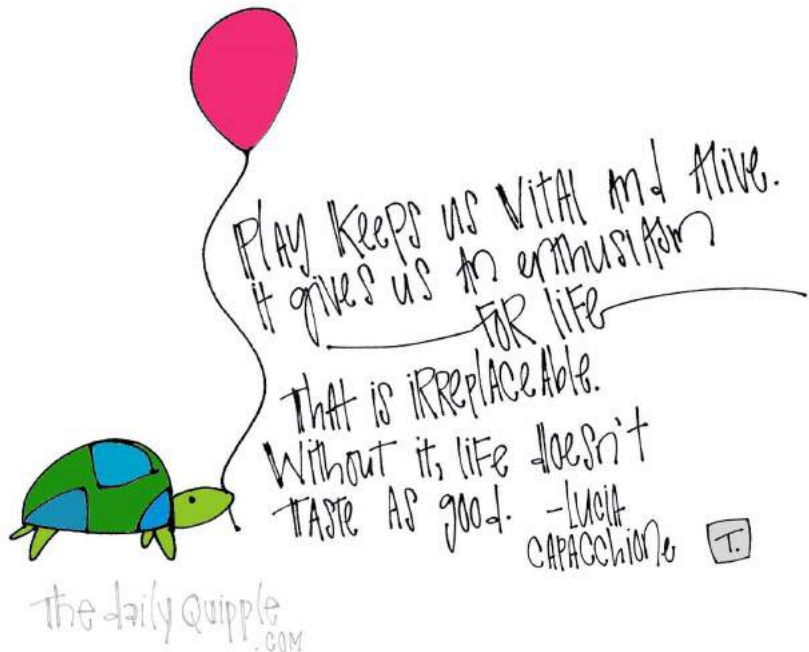 PLAY KEEPS US VITAL AND ALIVE.
it gives us an enthusiasm
FOR LIFE
THAT is iRREPLACEABLE.
Without it, life doesn't
TASTE AS good. -LUCIA
CAPACCHIONE T.
The daily Quipple
.COM